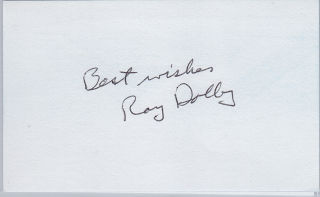 Best wishes
Ray Dolby